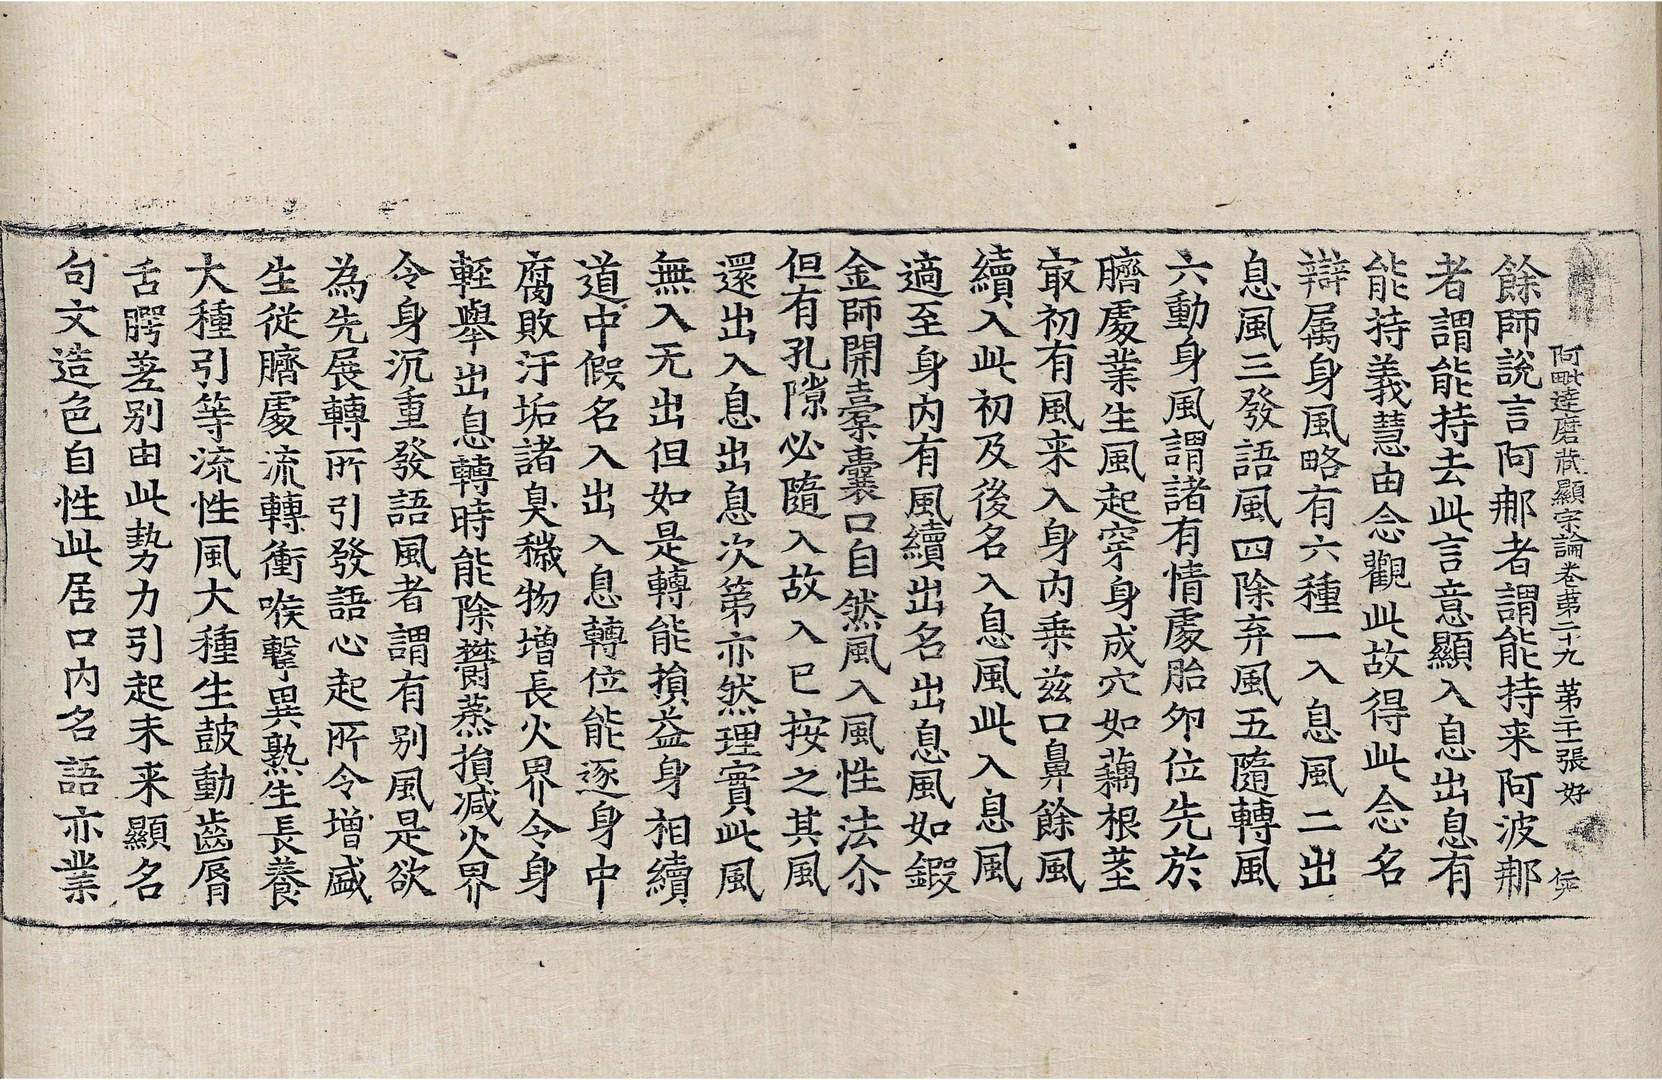 阿毗達磨藏顯宗論卷苐二十九 苐二十二張 好 㑣
餘師說言阿那者謂能持来阿波那
者謂能持去此言意顯入息出息有
能持義慧由念觀此故得此念名
辯属身風略有六種一入息風二出
息風三發語風四除弃風五隨轉風
六動身風謂諸有情處胎卵位先於
臍處業生風起穿身成穴如藕根莖
㝡初有風来入身內乗兹口鼻餘風
續入此初及後名入息風此入息風
適至身內有風續出名出息風如鍜
金師開橐囊口自然風入風性法尒
但有孔隙必隨入故入已按之其風
還出入息出息次苐亦然理實此風
無入无出但如是轉能損益身相續
道中假名入出入息轉位能逐身中
腐敗汙垢諸臭穢物增長火界令身
輕舉出息轉時能除欝蒸損減火界
令身沉重發語風者謂有别風是欲
為先展轉所引發語心起所令增盛
生從臍處流轉衝喉擊異熟生長養
大種引等流性風大種生鼓動齒脣
舌腭差别由此勢力引起未来顯名
句文造色自性此居口內名語亦業